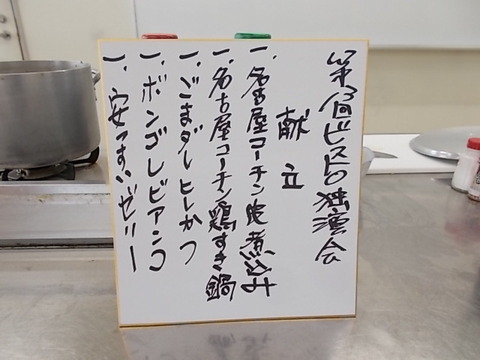 ビストロ独演会
献立
一、名古屋コーチン煮込み
一、名古屋コーチン鶏すき鍋
一、ごまダレヒレかつ
一、ボンゴレビアンコ
一、安っすいゼリー